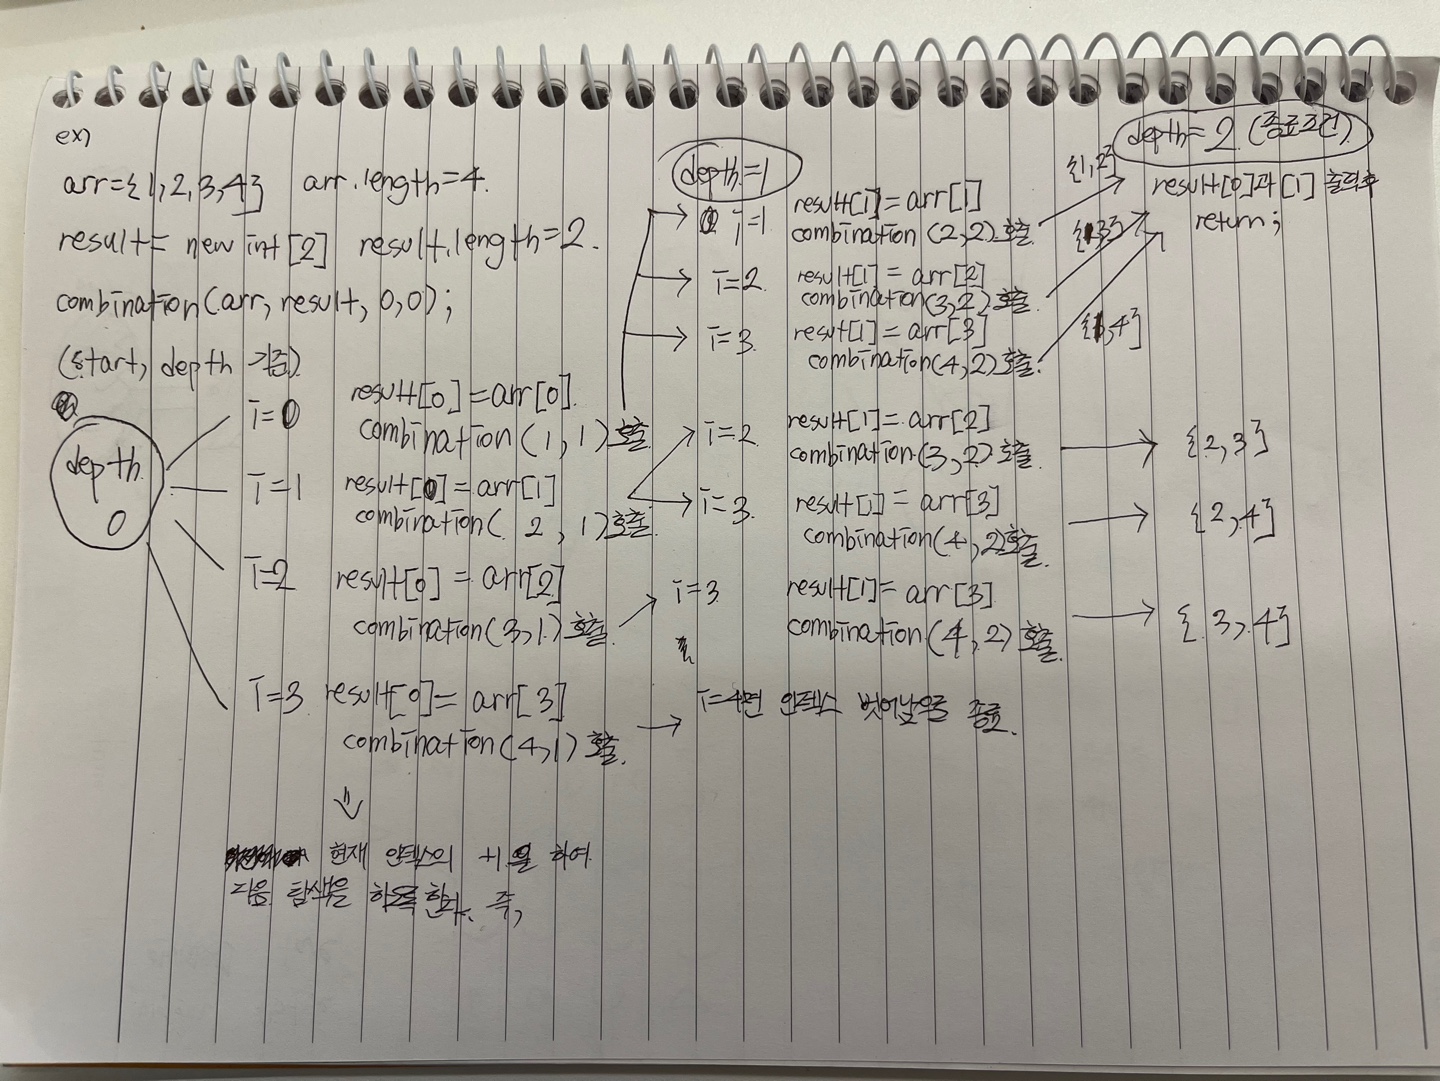 ex)
arr={1,2,3,4} arr.length=4.
result= new int[2] result.length=2.
combination(arr, result, 0,0);
(start, depth 기준)
depth
0
i=0 result[0]=arr[0].
combination(1, 1) 호출.
i=1 result[0]=arr[1]
combination( 2, 1) 호출.
i=2 result[0] = arr[2]
combination(3,1) 호출.
i=3 result[0]= arr[3]
combination(4,1) 호출.
현재 인덱스의 +1을 하여
다음 탐색을 하도록 한다. 즉,
depth=1
i=1 result[1]=arr[1]
combination (2,2) 호출.
i=2 result[1]=arr[2]
combination(3,2) 호출.
i=3. result[1]=arr[3]
combination(4,2) 호출.
i=2. result[1]=arr[2]
combination(3,2) 호출.
i=3. result[1] = arr[3]
combination(4,2) 호출.
i=3 result[1]= arr[3]
combination(4,2) 호출.
i=4면 인덱스 벗어남으로 종료.
depth=2 (종료조건)
result[0]과 [1] 출력후
return;
{1,2}
{1,3}
{1,4}
{2,3}
{2,4}
{3,4}